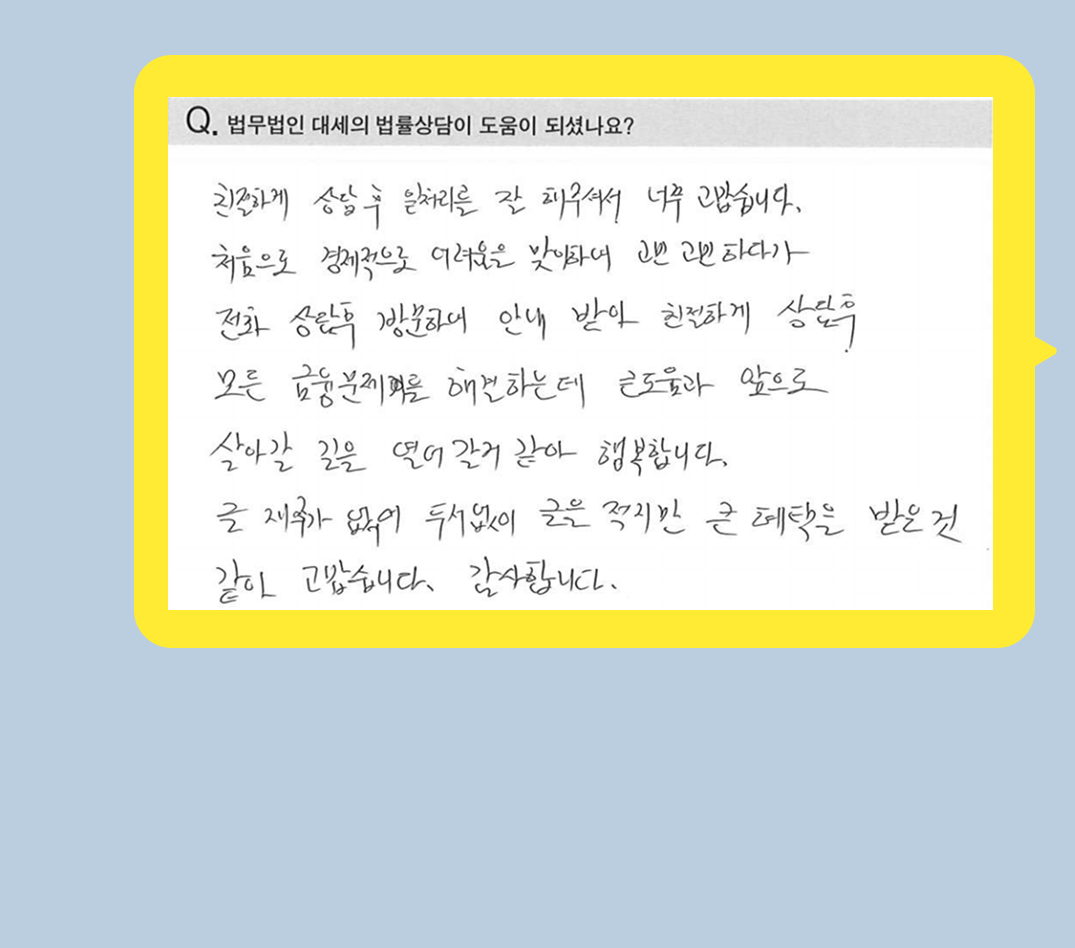 Q. 법무법인 대세의 법률상담이 도움이 되셨나요?
친절하게 상담 후 일처리를 잘 해주셔서 너무 고맙습니다.
처음으로 경제적으로 어려움을 맞이하여 고민 고민 하다가
전화 상담후 방문하여 안내 받아 친절하게 상담후
모든 금융문제를 해결하는데 큰도움과 앞으로
살아갈 길을 열어 갈거 같아 행복합니다.
글 재주가 없어 두서없이 글을 적지만 큰 혜택을 받은것
같아 고맙습니다. 감사합니다.